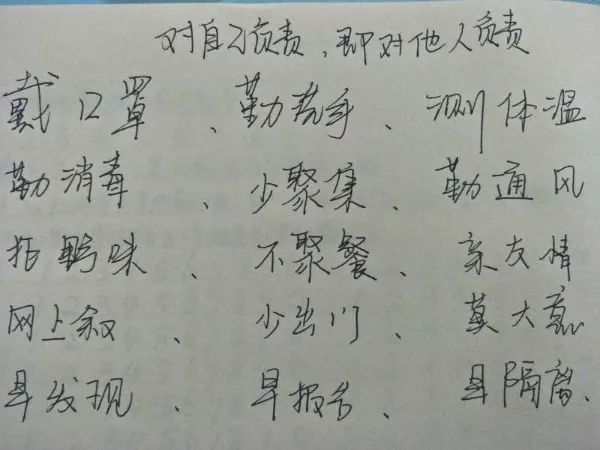 对自己负责，即对他人负责
戴口罩、勤洗手、测体温
勤消毒、少聚集、勤通风
拒野味、不聚餐、亲友情
网上叙、少出门、莫大意
早发现、早报告、早隔离.